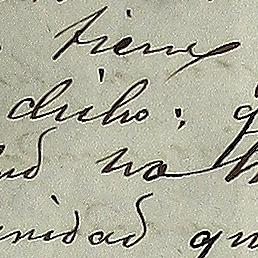 tiene
dicho; q
ud no h
nidad qu